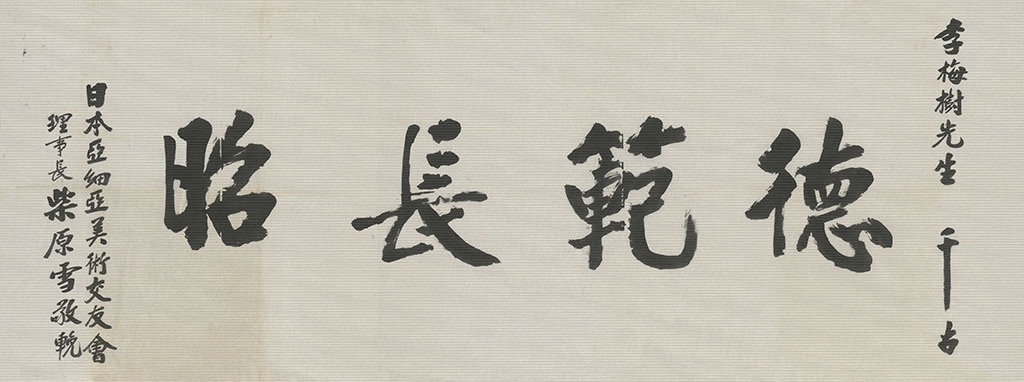 李梅樹先生 千古
德範長昭
日本亞細亞美術交友會
理事長 柴原雪敬輓